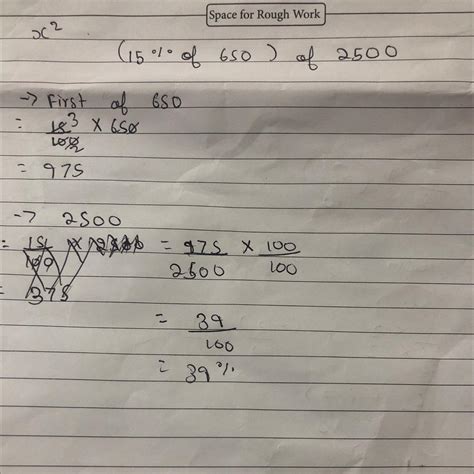 Space for Rough Work
x²
(15% of 650) of 2500
→ First of 650
= 15 3 / 100 2 × 650
= 975
→ 2500
= 15 / 100 = 975 / 2500 × 100 / 100
= 375
= 39 / 100
= 39%